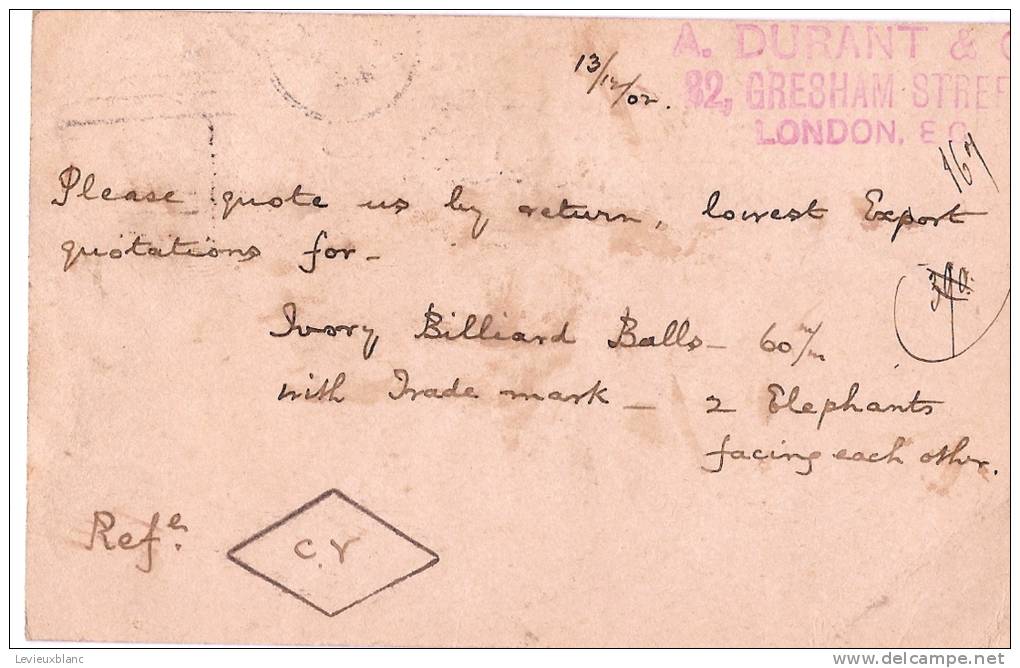 A. DURANT & C
82, GRESHAM STREE
LONDON. E.C.
13/12/02.
167
Please quote us by return, lowest Export
quotations for -
Ivory Billiard Balls - 60 m/m
with Trade mark - 2 Elephants
facing each other.
Refe.
C.V
Levieuxblanc
www.delcampe.net